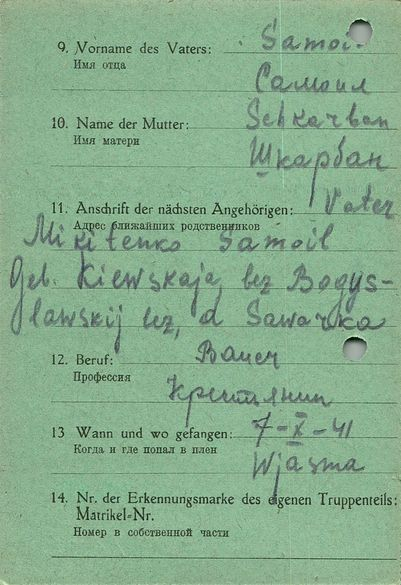 9. Vorname des Vaters: Samoi
Имя отца
Самоил
10. Name der Mutter: Schkarban
Имя матери
Шкарбан
11. Anschrift der nächsten Angehörigen: Vater
Адрес ближайших родственников
Mikitenko Samoil
Geb. Kiewskaja, bez Bogys-
lawskij bez, d Sawarka
12. Beruf: Bauer
Профессия
Крестянин
13 Wann und wo gefangen: 7-X-41
Когда и где попал в плен
Wjasma
14. Nr. der Erkennungsmarke des eigenen Truppenteils:
Matrikel=Nr.
Номер в собственной части